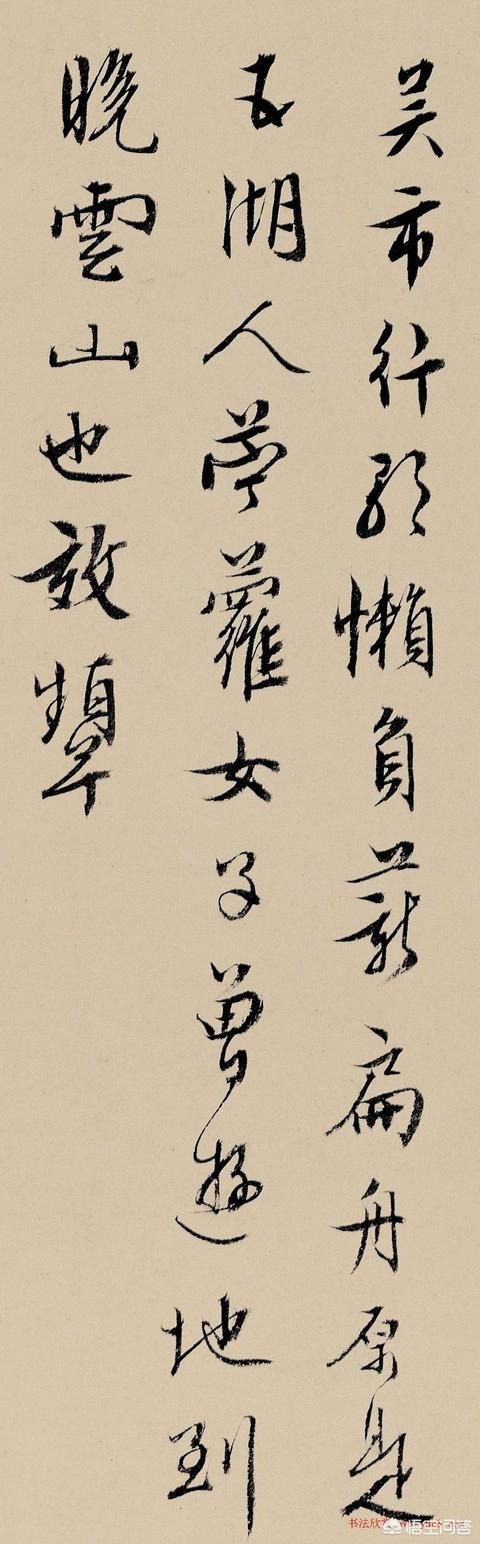 吴市行歌懒負薪扁舟原是
五湖人苧蘿女子曾遊地到
晚雲山也效顰
书法欣赏
悟空问答